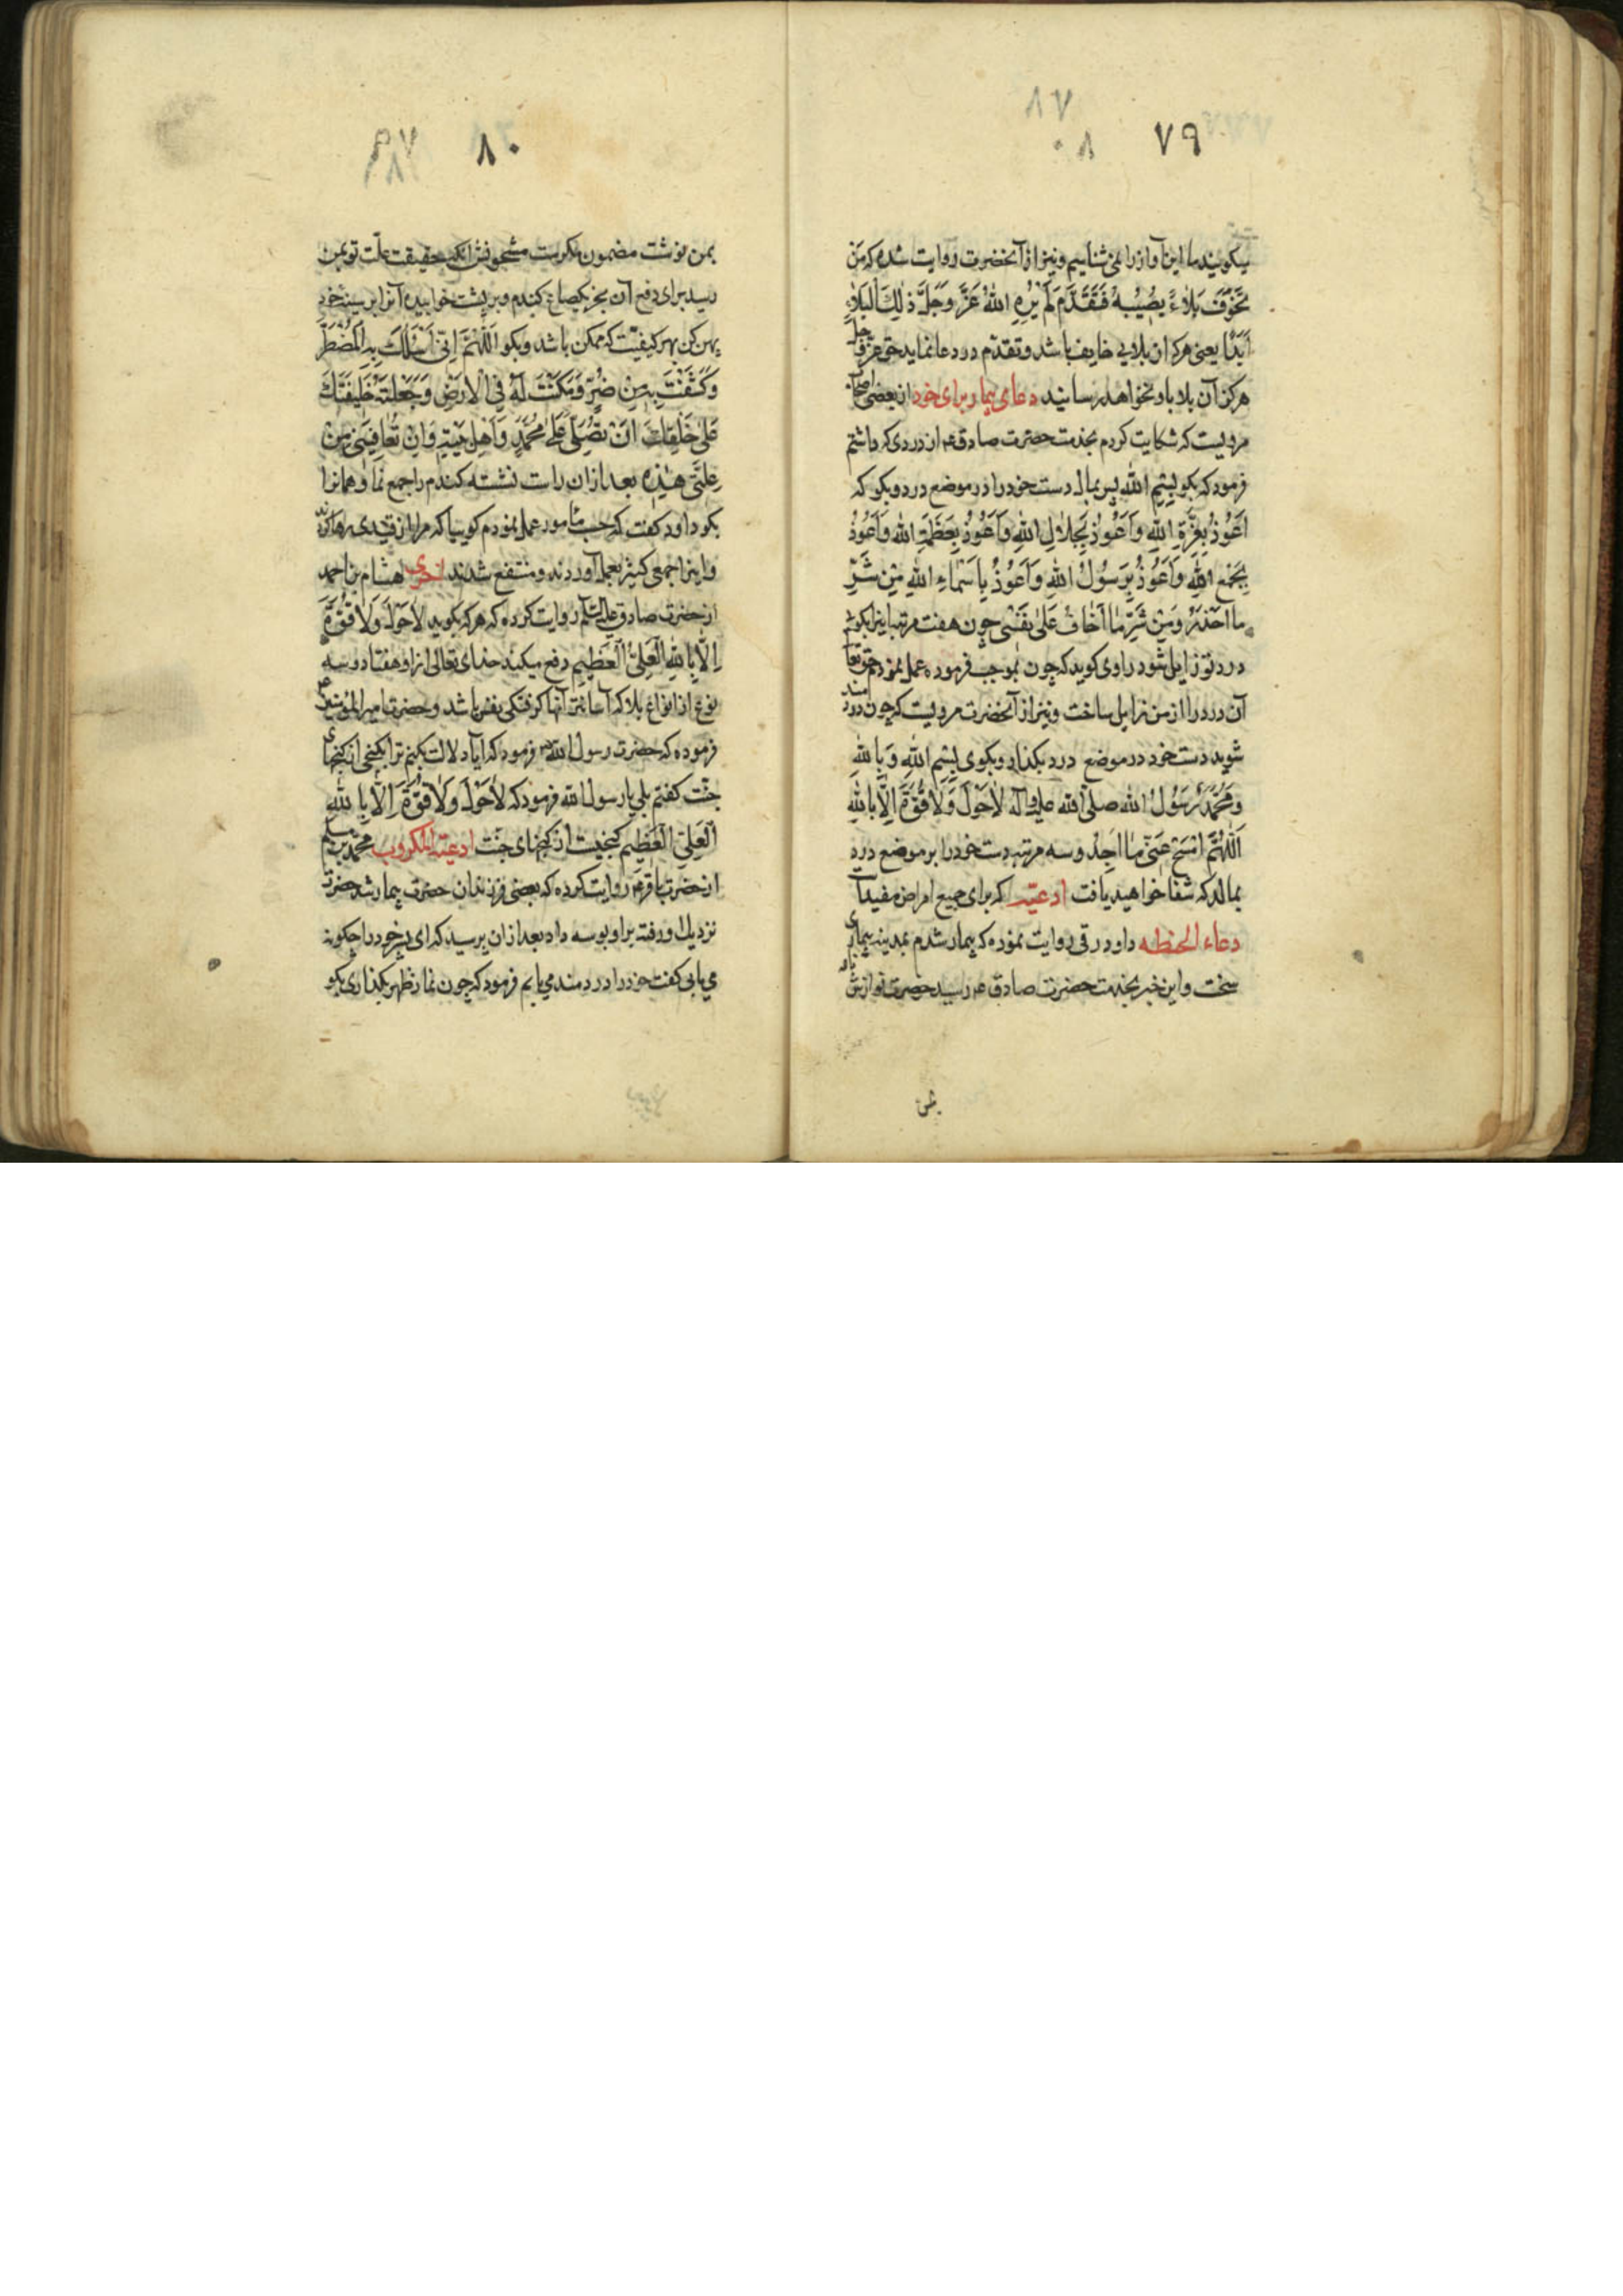 ٧٩
میکویند ما این آواز را نمی شناسیم و نیز از آنحضرت روایت شده که مَن
تَخَوَّفَ بَلاءً یُصیبُهُ فَتَقَدَّمَ لَم یُرِهِ اللهُ عَزَّ وَجَلَّ ذٰلِکَ البَلاءَ
اَبَدًا یعنی هرکه از بلایی خایف باشد و تقدّم در دعا نماید حق عزّ و جلّ
هرکز آن بلا باو نخواهد رسانید دعای بیمار برای خود از بعضی اصحاب
مرویست که شکایت کردم بخدمت حضرت صادق ع از دردی که داشتم
فرمود که بکو بِسمِ اللهِ پس بمال دست خود را در موضع درد و بکو که
اَعُوذُ بِعِزَّةِ اللهِ وَاَعُوذُ بِجَلالِ اللهِ وَاَعُوذُ بِعَظَمَةِ اللهِ وَاَعُوذُ
بِجَمعِ اللهِ وَاَعُوذُ بِرَسُولِ اللهِ وَاَعُوذُ بِاَسماءِ اللهِ مِن شَرِّ
ما اَحذَرُ وَمِن شَرِّ ما اَخافُ عَلیٰ نَفسی چون هفت مرتبه اینرا بکویی
درد تو زایل شود راوی کوید که چون بموجب فرموده عمل نمودم حق تعالی
آن درد را از من زایل ساخت و نیز از آنحضرت مرویست که چون دردمند
شوید دست خود در موضع درد بکذارد و بکوی بِسمِ اللهِ وَبِاللهِ
وَمُحَمَّدٌ رَسُولُ الله صلّی الله علیه و آله لاحَولَ وَلا قُوَّةَ اِلّا بِاللهِ
اَللّهُمَّ امسَح عَنّی ما اَجِدُ و سه مرتبه دست خود را بر موضع درد
بمالد که شفا خواهید یافت ادعیّه که برای جمیع امراض مفید است
دعاء الحنطه داود رقی روایت نموده که بیمار شدم بمدینه بیماری
سخت و این خبر بخدمت حضرت صادق ع رسید حضرت نوازش نامه
٨٠
بمن نوشت مضمون مکرمت مشحونش آنکه حقیقت علّت تو بمن
رسید برای دفع آن بخر یکصاع کندم و بر پشت خوابیده آنرا بر سینه خود
پهن کن بهر کیفیّت که ممکن باشد و بکو اَللّهُمَّ اِنّی اَسئَلُکَ بِهِ المُضطَرُّ
وَکَشَفتَ بِهِ مِن ضُرٍّ وَمَکَّنتَ لَهُ فِی الاَرضِ وَجَعَلتَهُ خَلیفَتَکَ
عَلیٰ خَلقِکَ اَن تُصَلِّیَ عَلیٰ مُحَمَّدٍ وَاَهلِ بَیتِهِ وَاَن تُعافِیَنی مِن
عِلَّتی هٰذِهِ بعد ازان راست نشسته کندم را جمع نما و همانرا
بکو داود کفت که حسب مأمور عمل نمودم کوییا که مرا از قیدی رها کردند
و اینرا جمعی کثیر بعمل آوردند و منتفع شدند اُخری هشام بن احمد
از حضرت صادق علیه السّلم روایت کرده که هرکه بکوید لاحَولَ وَلا قُوَّةَ
اِلّا بِاللهِ العَلِیِّ العَظیمِ دفع میکند خدای تعالی از او هفتاد و سه
نوع از انواع بلا که آسانتر آنها کرفتکی نفس باشد و حضرت امیرالمؤمنین ع
فرموده که حضرت رسول الله ص فرمود که آیا دلالت بکنم ترا بکنجی از کنجهای
جنّت کفتم بلی یا رسول الله فرمود که لاحَولَ وَلا قُوَّةَ اِلّا بِاللهِ
العَلِیِّ العَظیمِ کنجیست از کنجهای جنّت ادعیّة المکروب محمّد بن مسلم
از حضرت باقر ع روایت کرده که بعضی فرزندان حضرت بیمار شد حضرت
نزدیك او رفته بر او بوسه داد بعد ازان پرسید که ای پسر خود را چکونه
می یابی کفت خود را دردمند می یابم فرمود که چون نماز ظهر بکذاری بکو